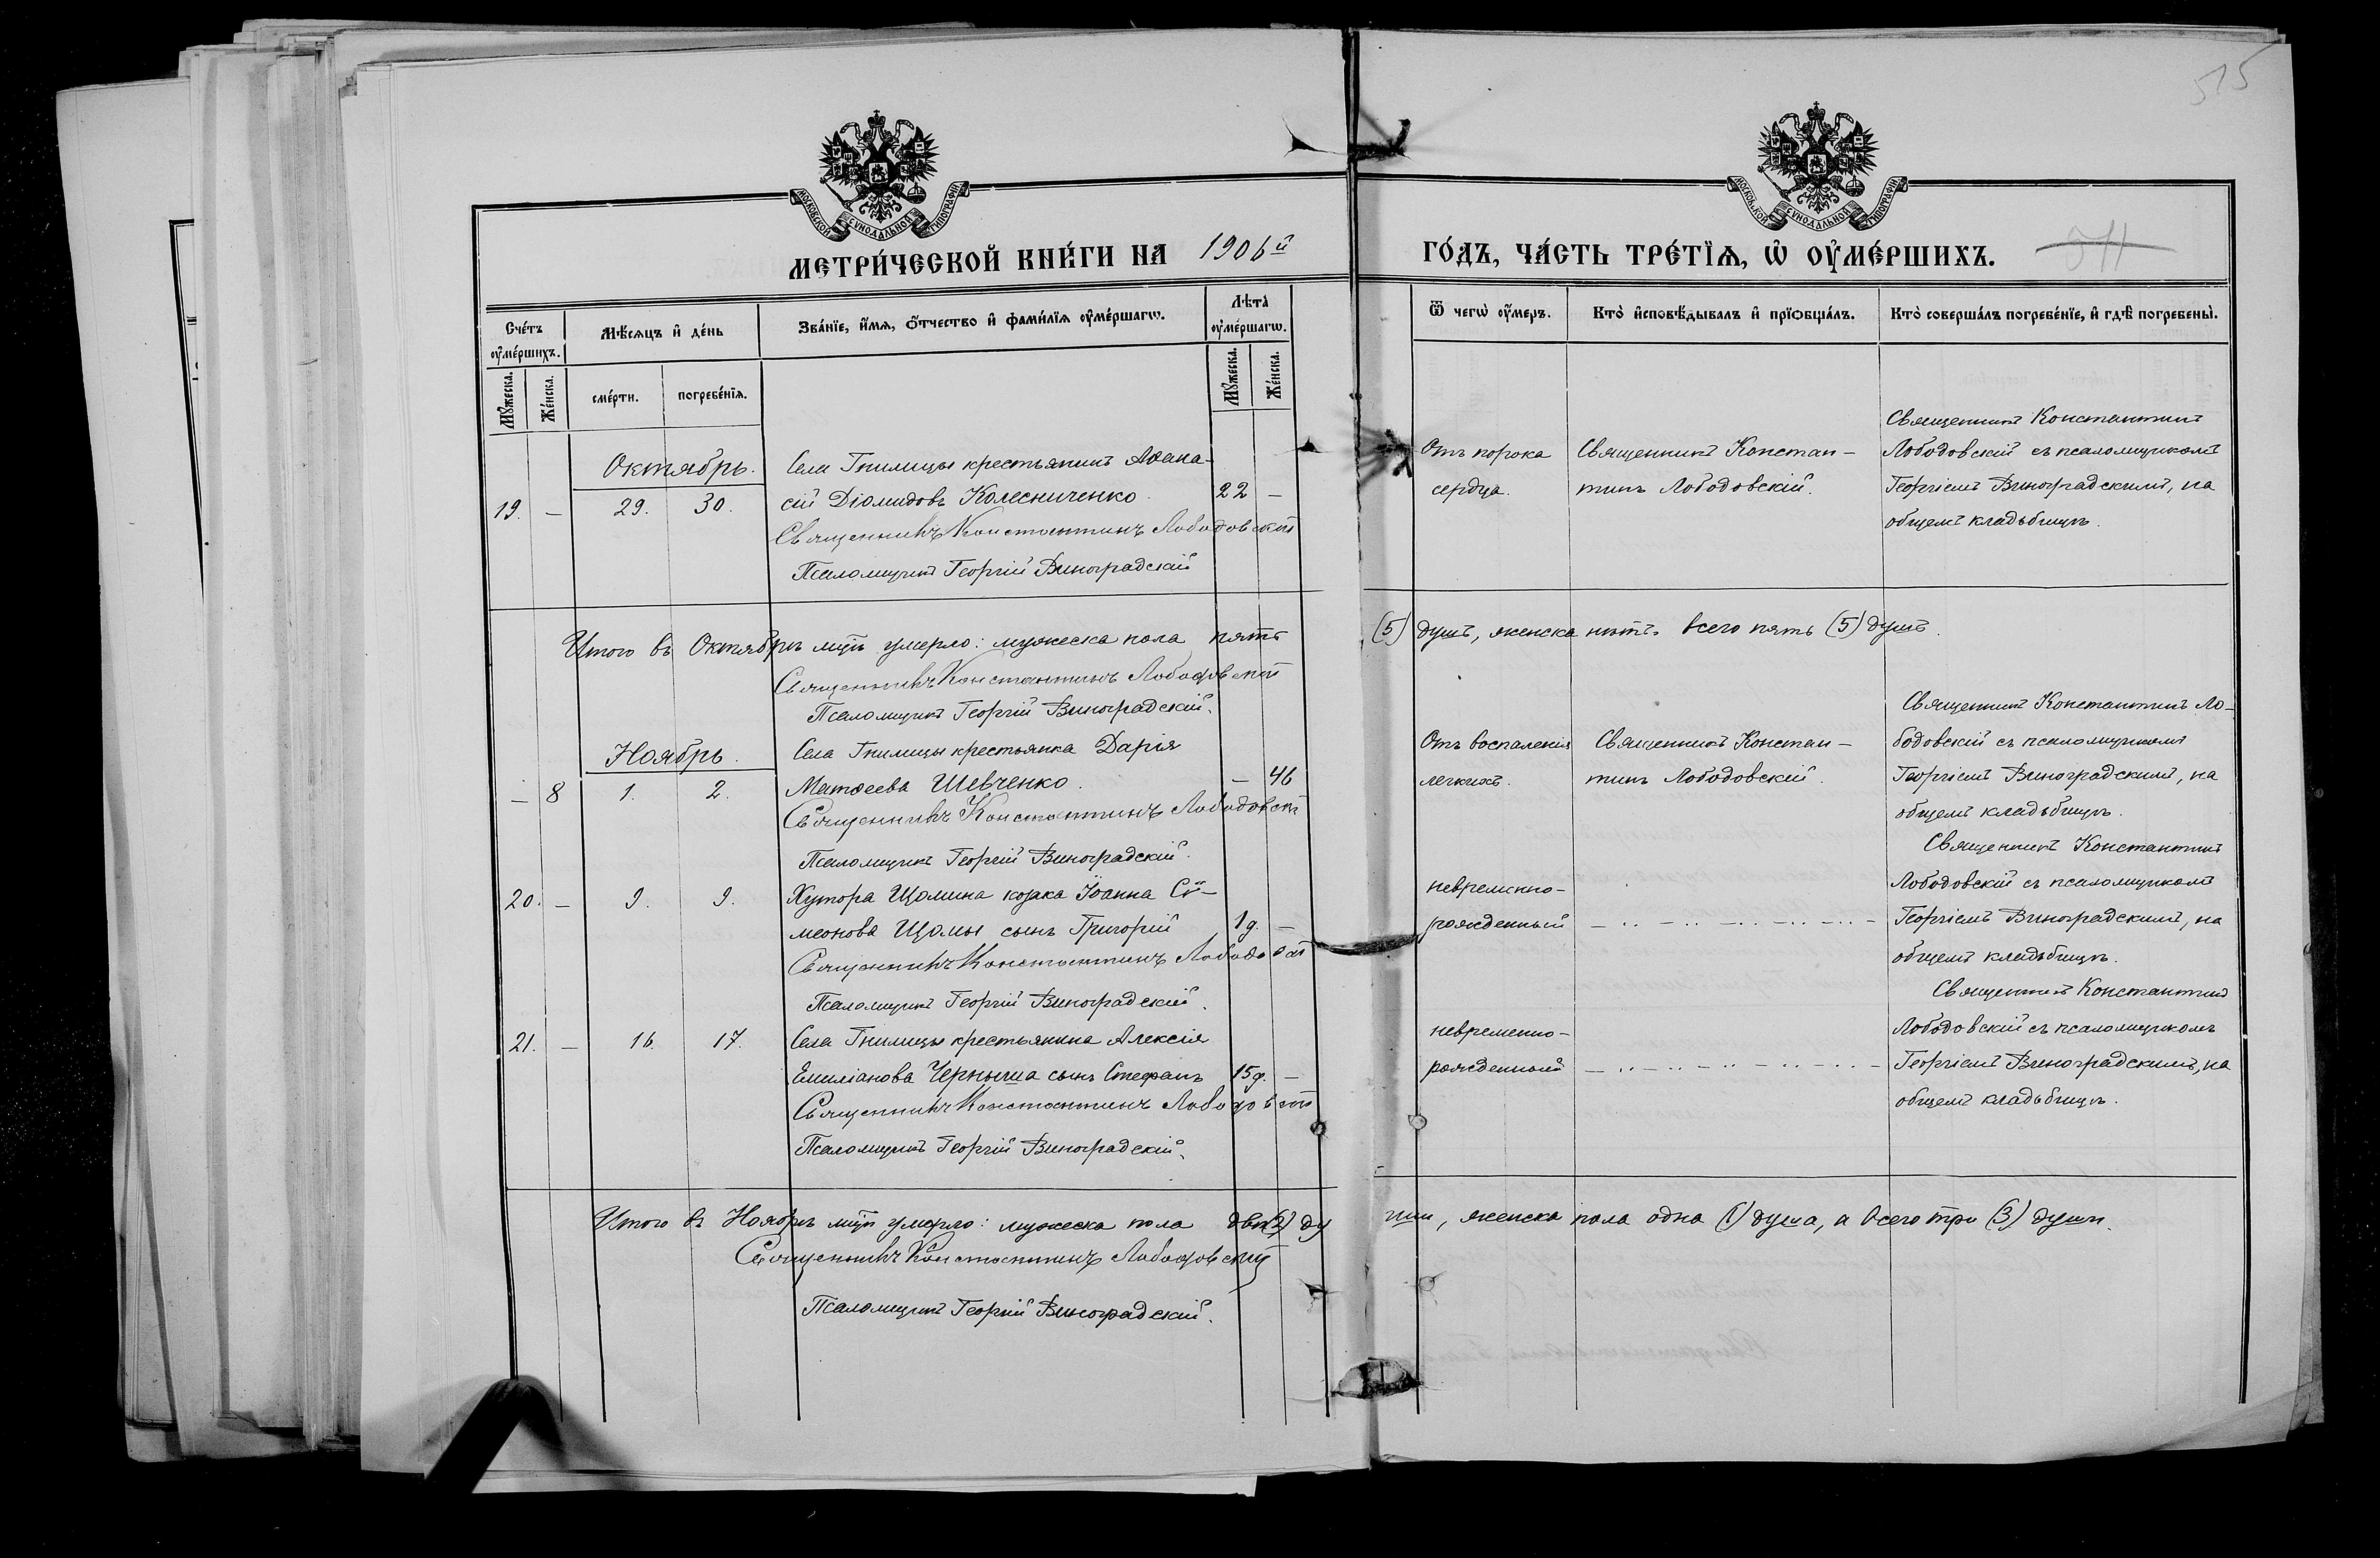 515
МОСКОВСКОЙ СѴНОДАЛЬНОЙ ТИПОГРАФІИ
МОСКОВСКОЙ СѴНОДАЛЬНОЙ ТИПОГРАФІИ
МЕТРИ́ЧЕСКОЙ КНИ́ГИ НА 1906й ГО́ДЪ, ЧА́СТЬ ТРЕ́ТЇѦ, Ѡ҆ ОУ҆МЕ́РШИХЪ.
Сче́тъ оу҆ме́ршихъ.
Мꙋ́жеска.
Же́нска.
Мѣ́сѧцъ и҆ де́нь
сме́рти.
погребе́нїѧ.
Зва́нїе, и҆́мѧ, ѻ҆́тчество и҆ фами́лїѧ оу҆ме́ршагѡ.
Лѣ́та̀ оу҆ме́ршагѡ.
Мꙋ́жеска.
Же́нска.
Ѿ чегѡ̀ оу҆́меръ.
Кто̀ и҆сповѣ́дывалъ и҆ прїѻбща́лъ.
Кто̀ соверша́лъ погребе́нїе, и҆ гдѣ̀ погребены̀.
Октябрь.
19. — 29. 30.
Села Гнилицы крестьянинъ Аѳана-
сій Діомидовъ Колесниченко 22 —
Священникъ Константинъ Лободовскій
Псаломщикъ Георгій Виноградскій
Отъ порока
сердца.
Священникъ Констан-
тинъ Лободовскій.
Священникъ Константинъ
Лободовскій съ псаломщикомъ
Георгіемъ Виноградскимъ, на
общемъ кладьбищѣ.
Итого въ Октябрѣ мцѣ умерло: мужеска пола пять (5) душъ, женска нѣтъ. всего пять (5) душъ.
Священникъ Константинъ Лободовскій
Псаломщикъ Георгій Виноградскій.
Ноябрь.
— 8 1. 2.
Села Гнилицы крестьянка Дарія
Матѳеева Шевченко. — 46
Священникъ Константинъ Лободовскій
Псаломщикъ Георгій Виноградскій.
Отъ воспаленія
легкихъ.
Священникъ Констан-
тинъ Лободовскій.
Священникъ Константинъ Ло-
бодовскій съ псаломщикомъ
Георгіемъ Виноградскимъ, на
общемъ кладьбищѣ.
20. — 9. 9.
Хутора Щомина козака Іоанна Сѵ-
меонова Щомы сынъ Григорій 1д. —
Священникъ Константинъ Лободовскій
Псаломщикъ Георгій Виноградскій.
невременно-
рожденный
Священникъ Константинъ
Лободовскій съ псаломщикомъ
Георгіемъ Виноградскимъ, на
общемъ кладьбищѣ.
21. — 16. 17.
Села Гнилицы крестьянина Алексія
Емиліанова Черныша сынъ Стефанъ 15д. —
Священникъ Константинъ Лободовскій
Псаломщикъ Георгій Виноградскій.
невременно-
рожденный
Священникъ Константинъ
Лободовскій съ псаломщикомъ
Георгіемъ Виноградскимъ, на
общемъ кладьбищѣ.
Итого въ Ноябрѣ мцѣ умерло: мужеска пола двѣ (2) души, женска пола одна (1) душа, а всего три (3) души.
Священникъ Константинъ Лободовскій
Псаломщикъ Георгій Виноградскій.